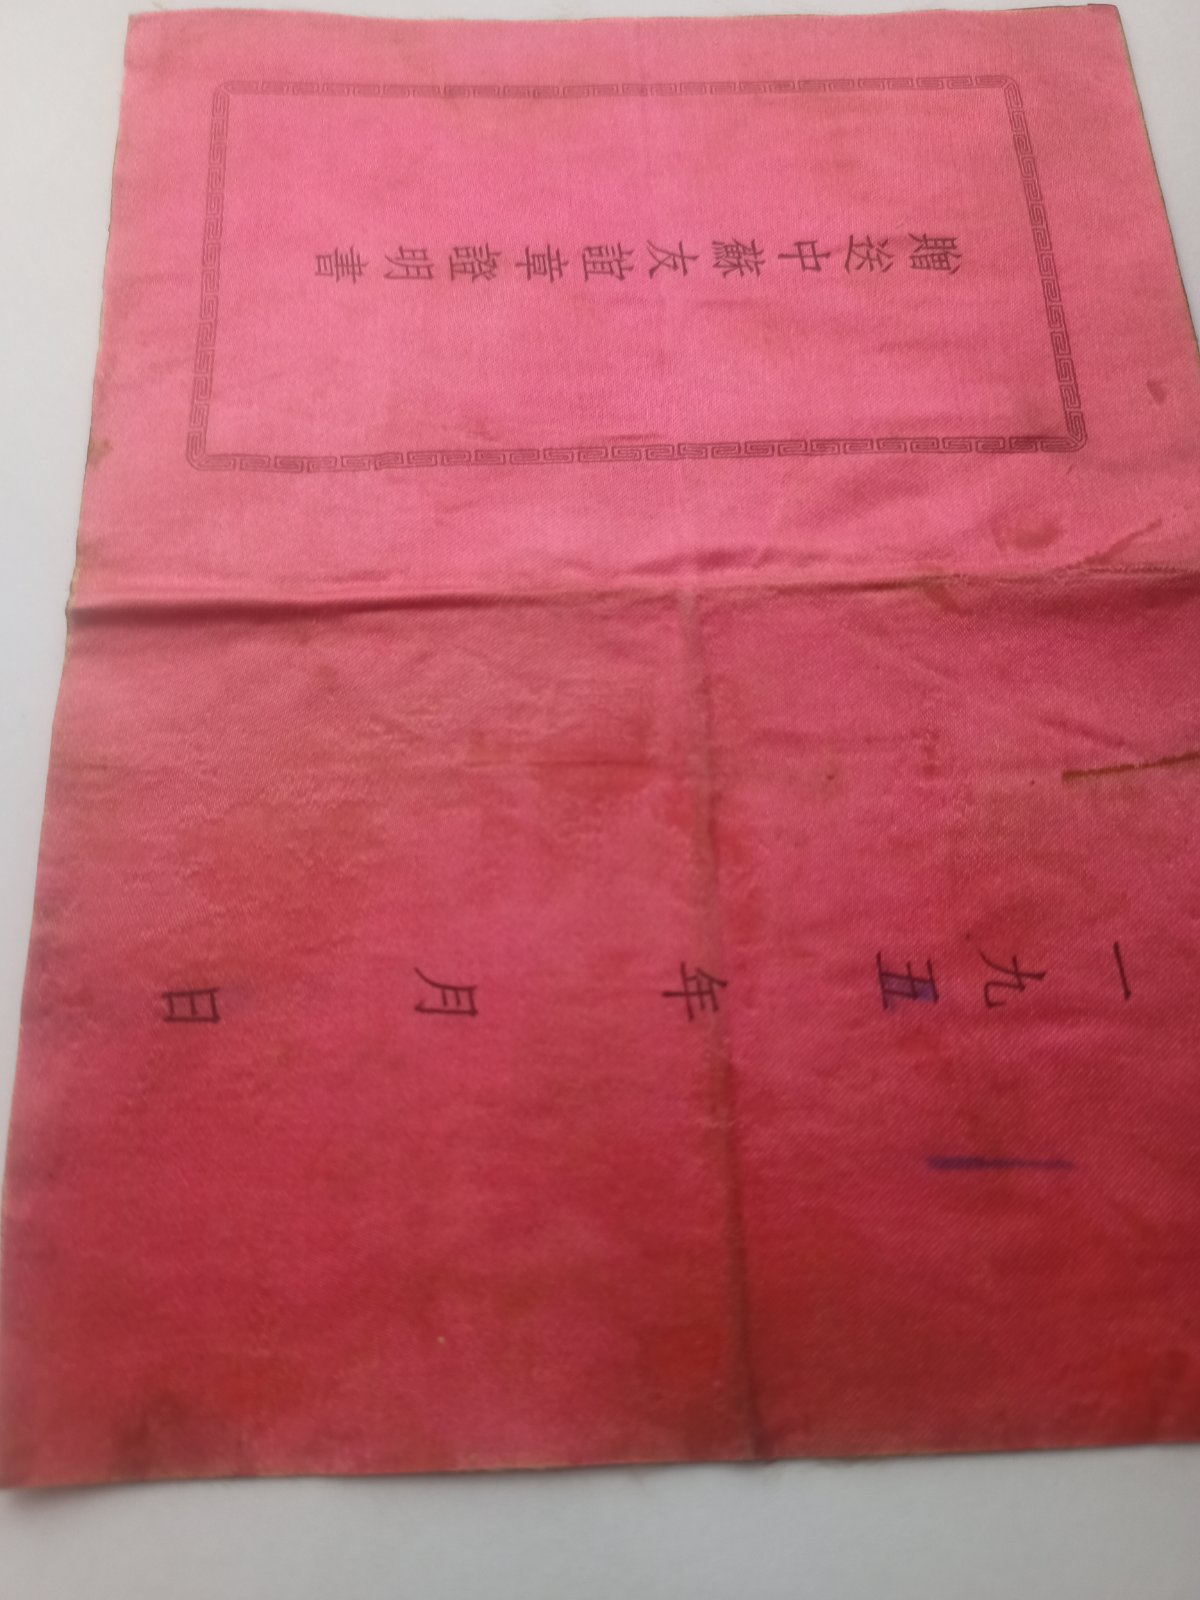 贈送中蘇友誼章證明書
一九五年月日